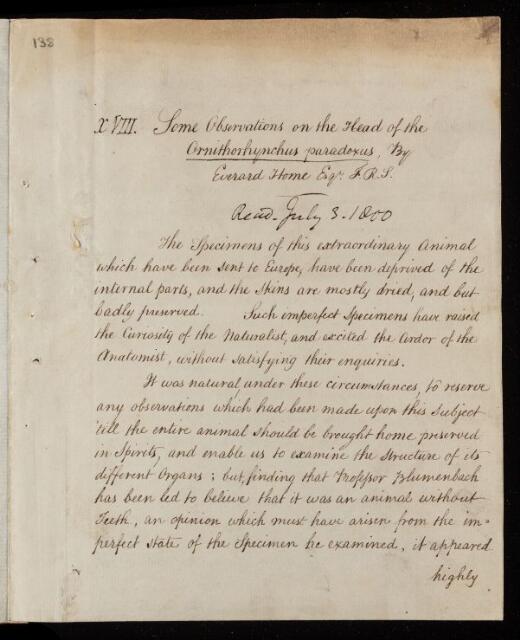 138
XVIII. Some Observations on the Head of the
Ornithorhynchus paradoxus, By
Everard Home Esqr. F.R.S.
Read July 3. 1800
The Specimens of this extraordinary Animal
which have been sent to Europe, have been deprived of the
internal parts, and the Skins are mostly dried, and but
badly preserved. Such imperfect Specimens have raised
the Curiosity of the Naturalist, and excited the Ardor of the
Anatomist, without satisfying their enquiries.
It was natural, under these circumstances, to reserve
any observations which had been made upon this Subject
'till the entire animal should be brought home preserved
in Spirits, and enable us to examine the Structure of its
different Organs; but, finding that Professor Blumenbach
has been led to believe that it was an animal without
Teeth, an opinion which must have arisen from the im=
perfect State of the Specimen he examined, it appeared
highly